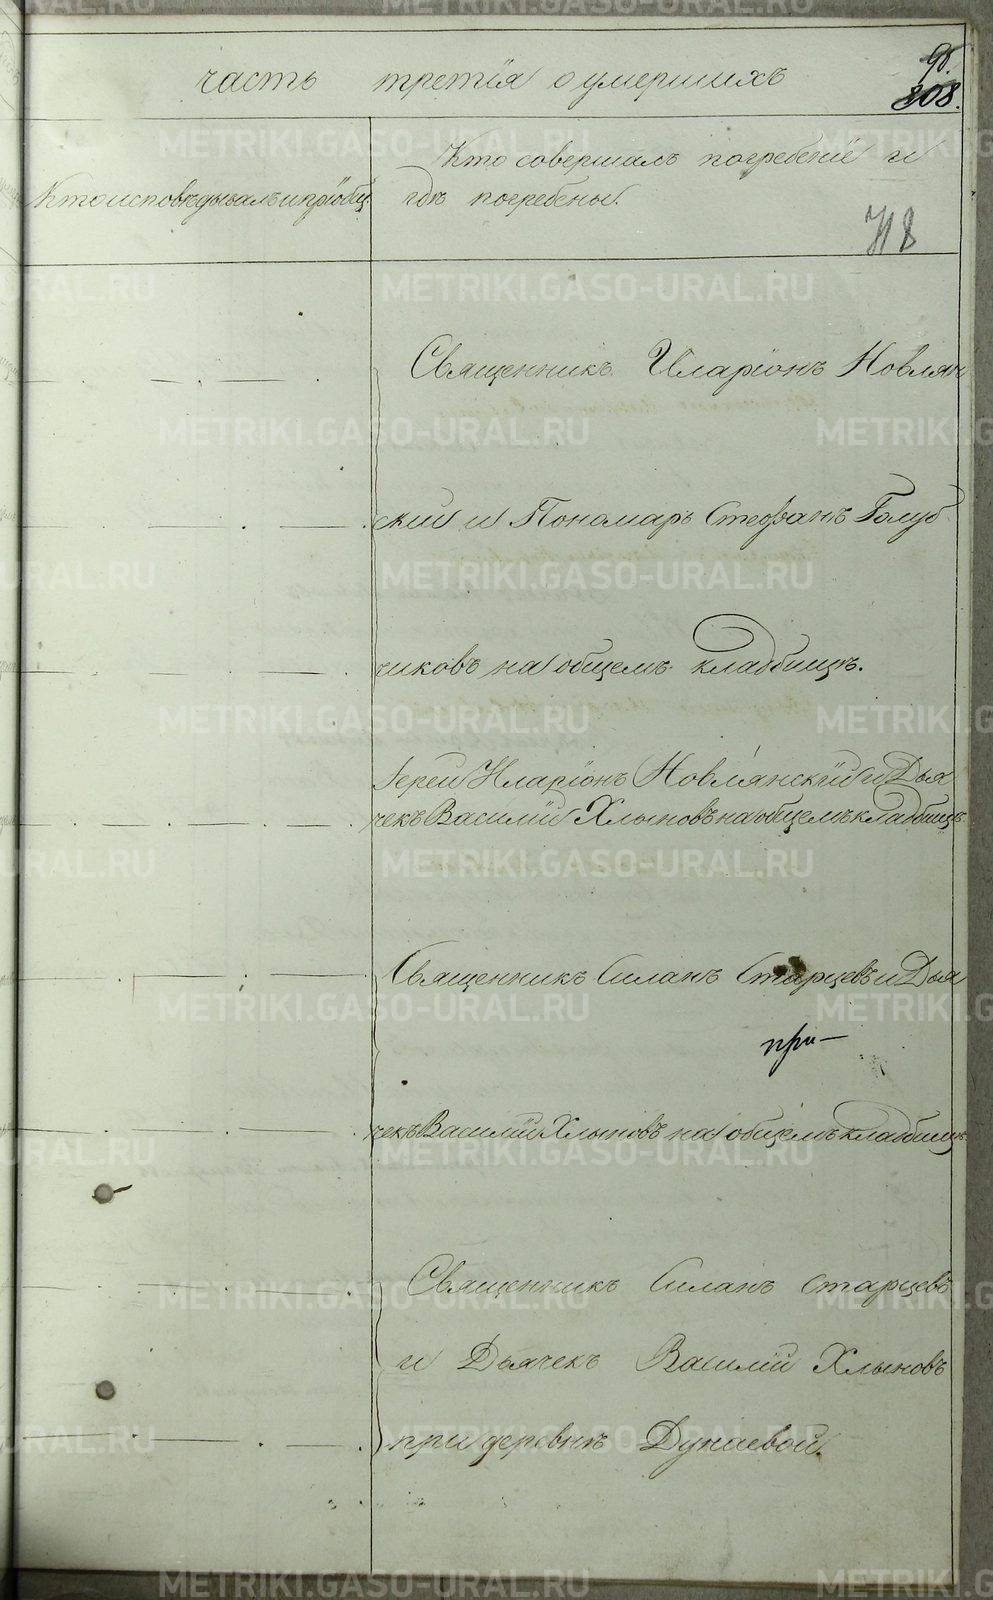 часть третія о умершихъ
98.
808.
Кто исповѣдывалъ и пріобщ.
Кто совершалъ погребеніе и
гдѣ погребены.
718
Священникъ Иларіонъ Новлян
скій и Пономарь Стефанъ Голуб
чиковъ на общемъ кладбищѣ.
Іерей Иларіонъ Новлянскій и Дья
чекъ Василій Хлыновъ на общемъ кладбищѣ
Священникъ Силанъ Старцевъ и Дья
при—
чекъ Василій Хлыновъ на общемъ кладбищѣ
Священникъ Силанъ Старцевъ
и Дьячекъ Василій Хлыновъ
при деревнѣ Дунаевой.
METRIKI.GASO-URAL.RU